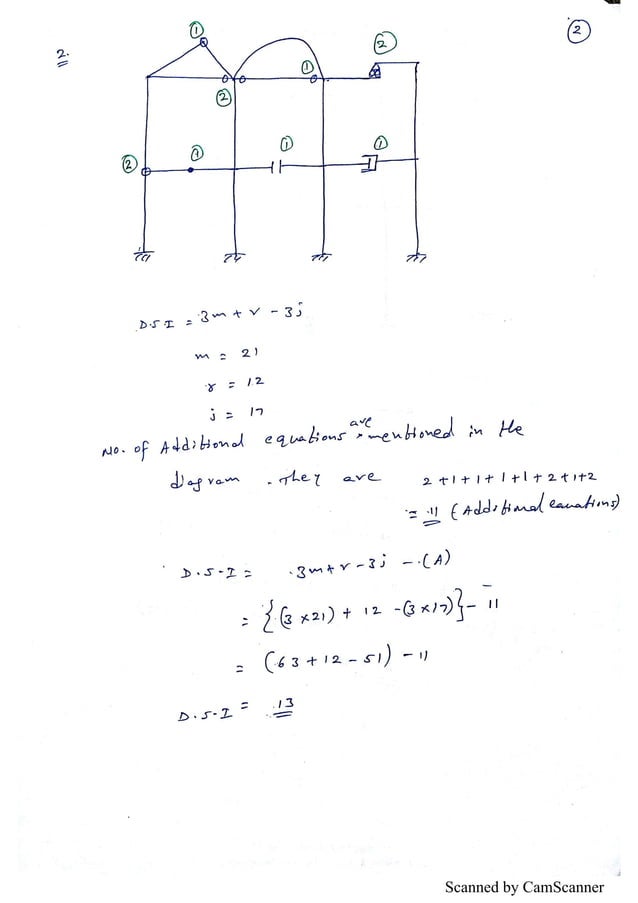 ②
2.
①
②
①
②
①
①
①
②
D.S.I = 3m + r - 3j
m = 21
r = 12
j = 17
No. of Additional equations are mentioned in the
diagram. They are 2+1+1+1+1+2+1+2
= 11 (Additional equations)
D.S.I = 3m+r-3j -(A)
= {(3×21) + 12 -(3×17)} - 11
= (63+12-51) - 11
D.S.I = 13
Scanned by CamScanner